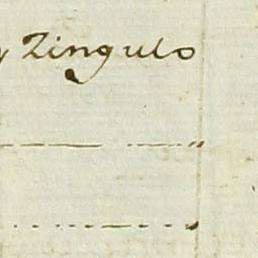 y Zingulo